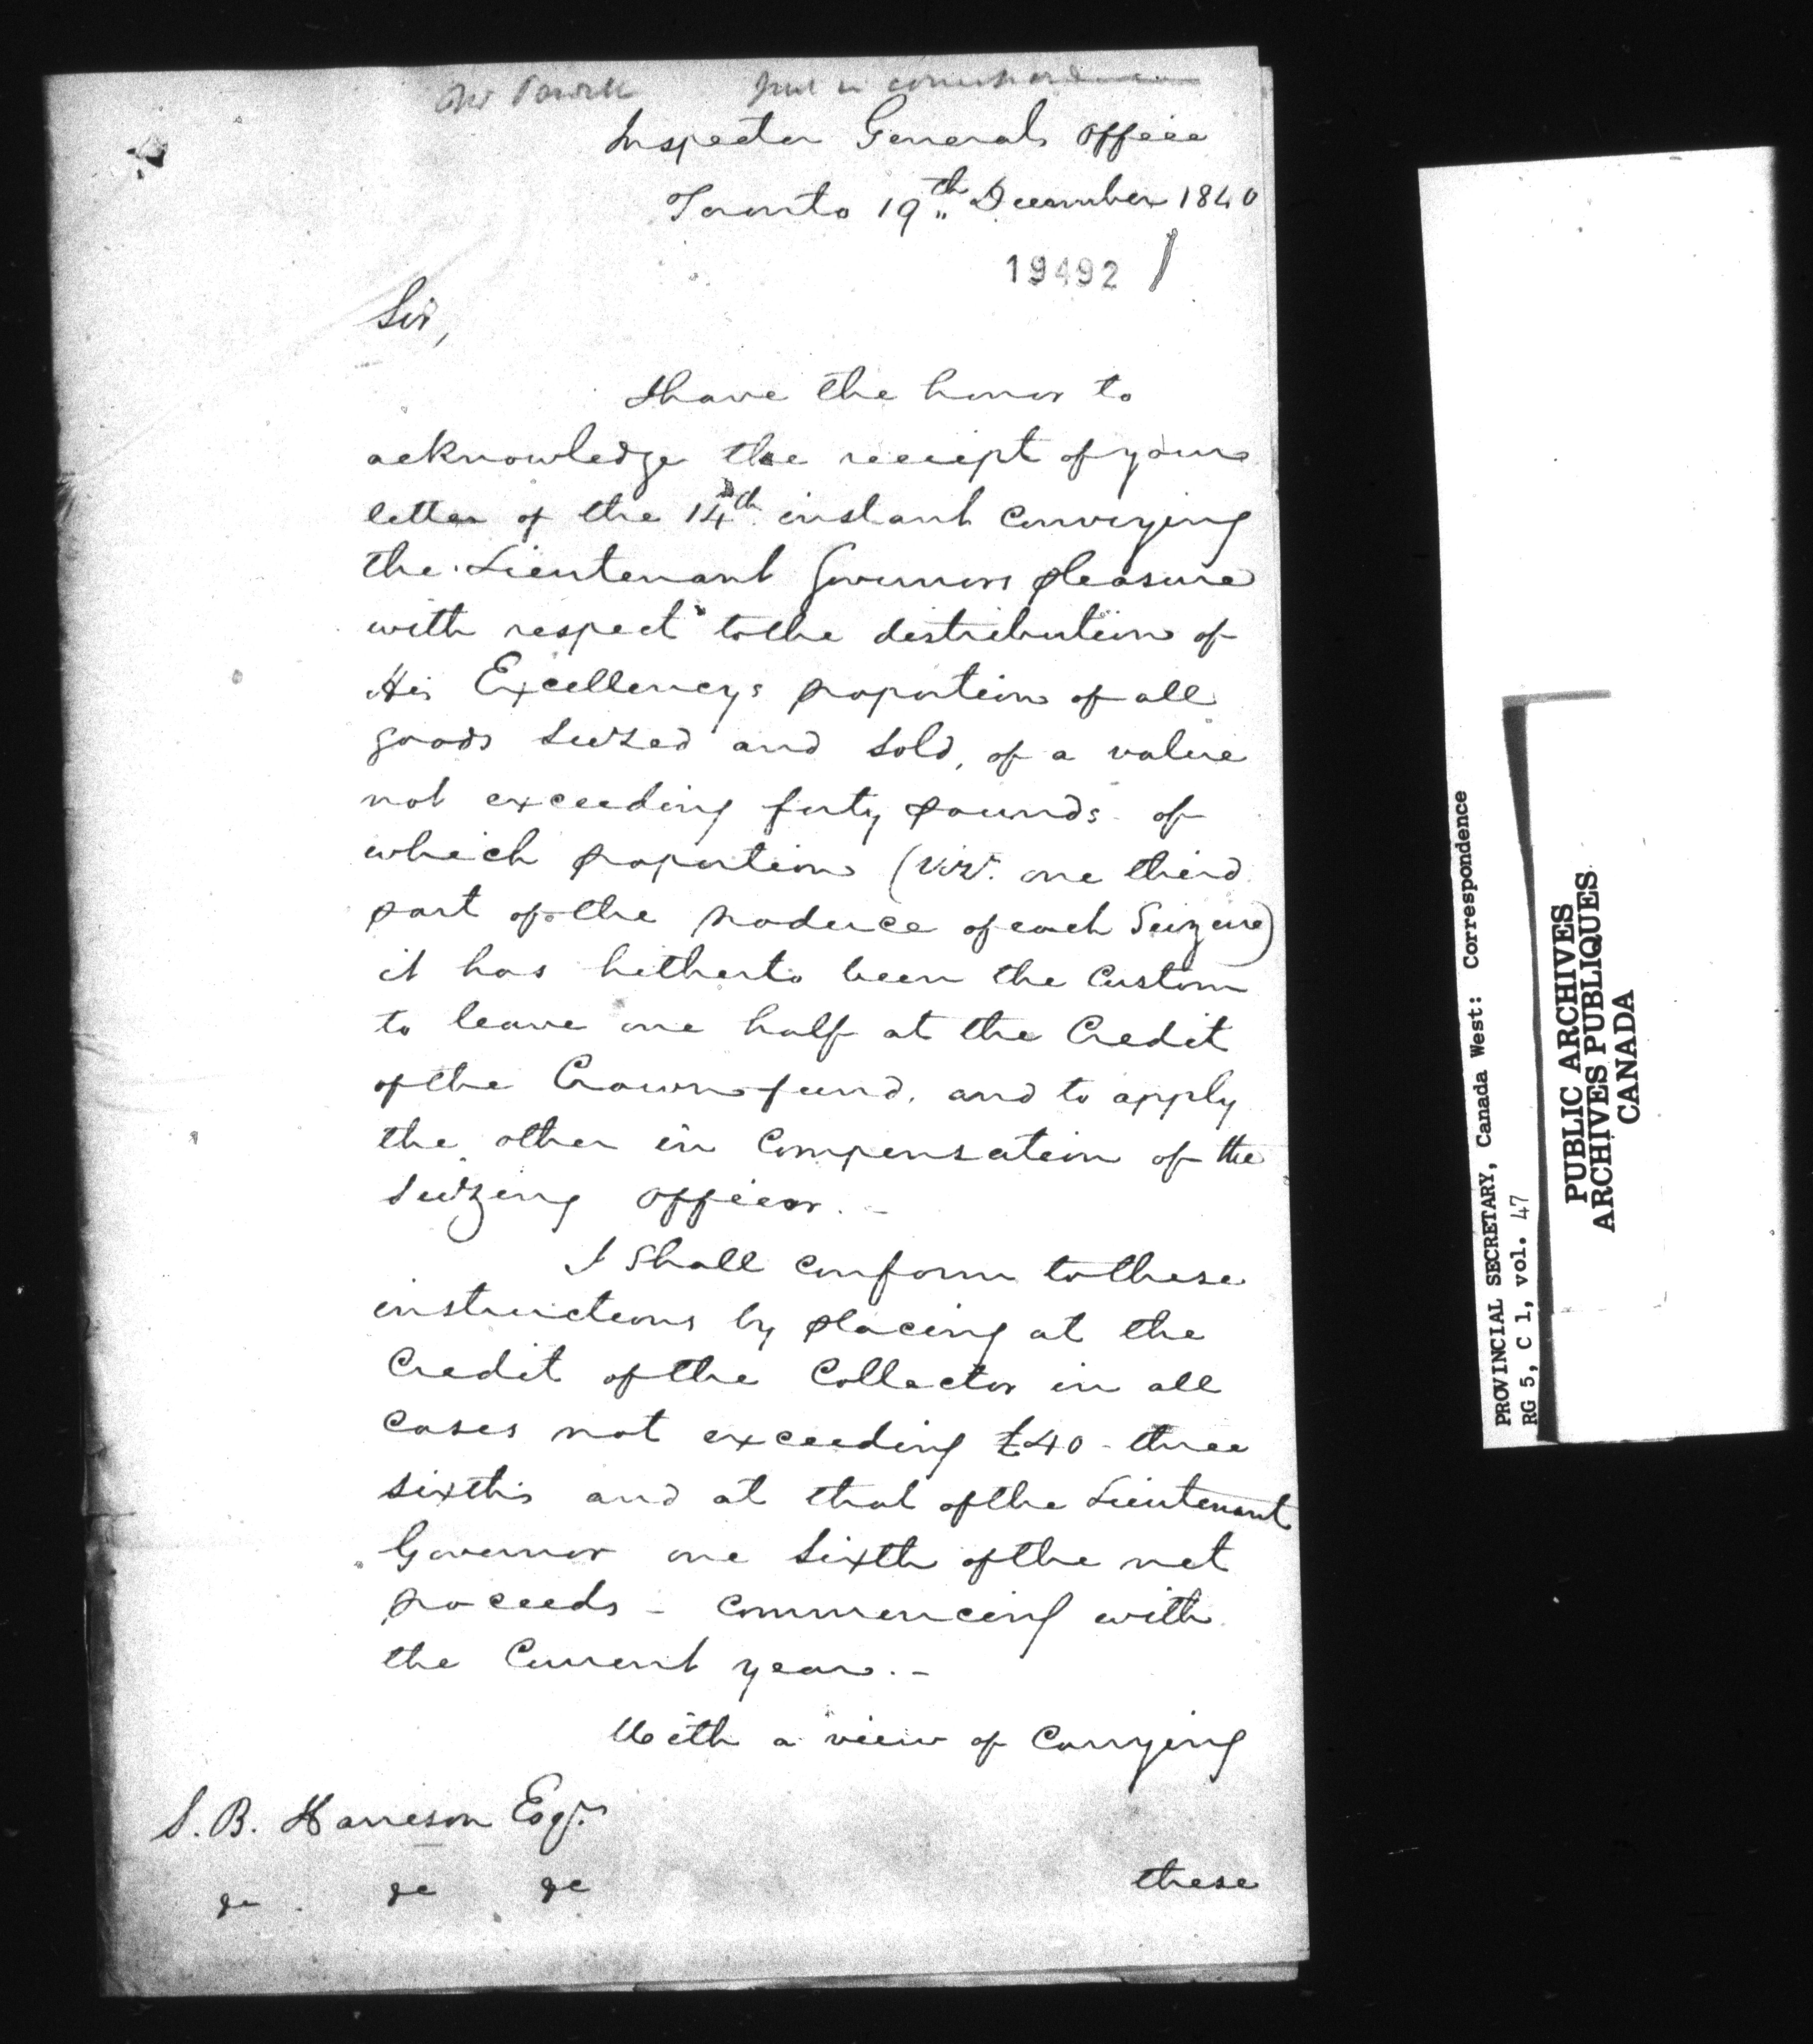 Inspector Generals Office
Toronto 19th December 1840
19492
Sir,
I have the honor to
acknowledge the receipt of your
letter of the 14th instant conveying
the Lieutenant Governors pleasure
with respect to the distribution of
His Excellency's proportion of all
goods seized and sold, of a value
not exceeding forty pounds of
which proportion (viz. one third
part of the produce of each Seizure)
it has hitherto been the Custom
to leave one half at the Credit
of the Crown fund, and to apply
the other in Compensation of the
Seizing Officer. -
I Shall conform to these
instructions by placing at the
Credit of the Collector in all
cases not exceeding £40 - three
sixths and at that of the Lieutenant
Governor one sixth of the net
proceeds - commencing with
the Current year. -
With a view of Carrying
S. B. Harrison Esqr.
&c &c &c
these
PROVINCIAL SECRETARY, Canada West: Correspondence
RG 5, C 1, vol. 47
PUBLIC ARCHIVES
ARCHIVES PUBLIQUES
CANADA